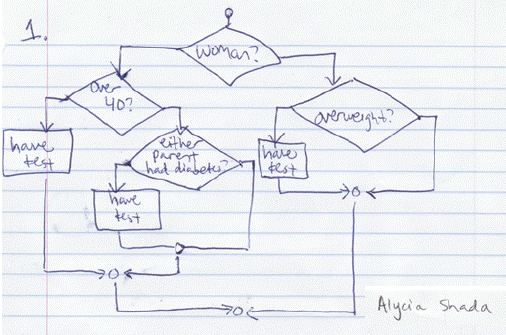 1.
woman?
over
40?
overweight?
have
test
either
parent
had diabetes?
have
test
have
test
Alycia Shada